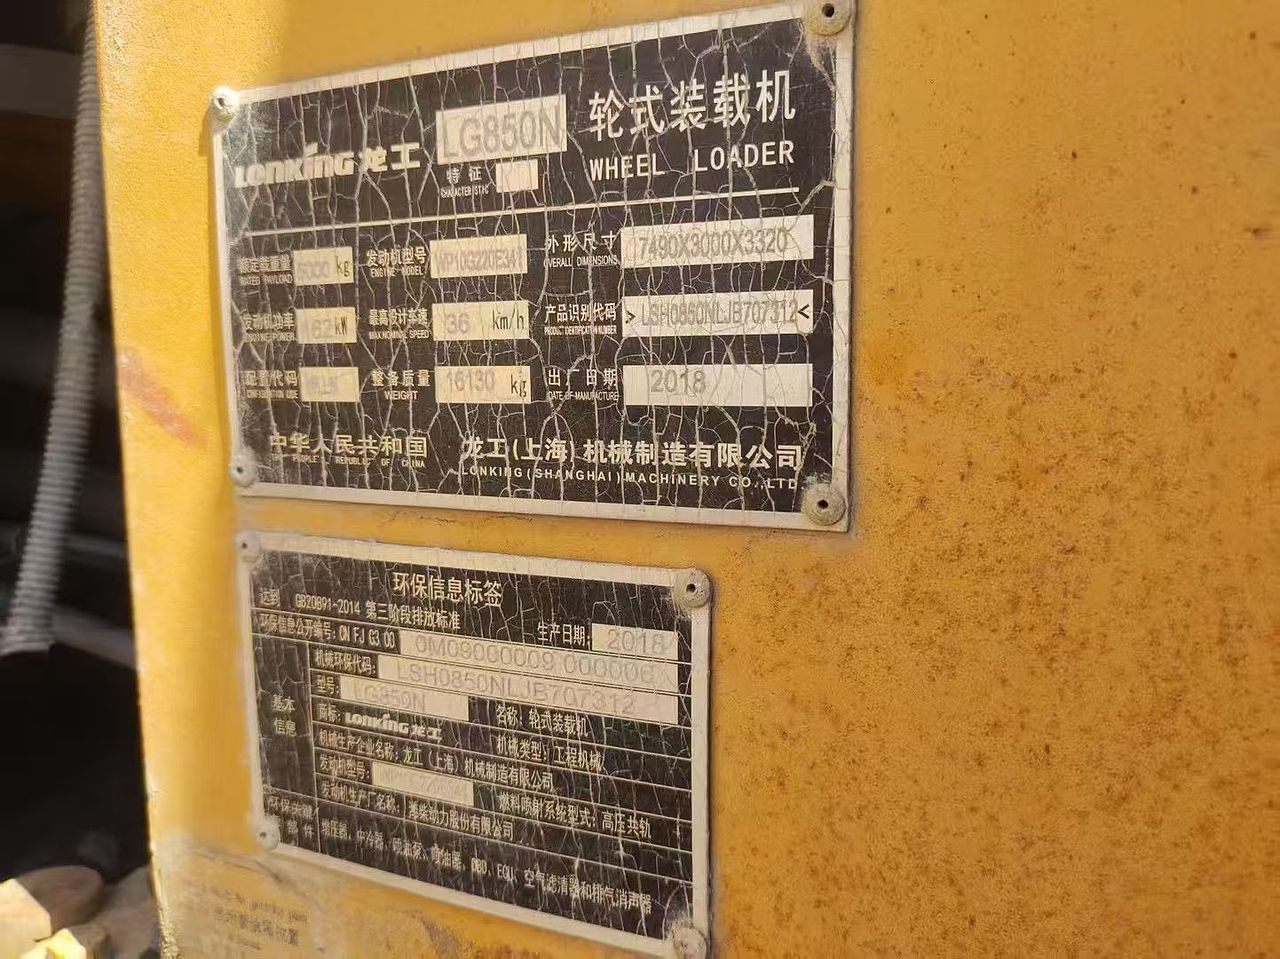 LONKING 龙工 LG850N 轮式装载机
特征
CHARACTERISTIC
WHEEL LOADER
额定装重量 5000 kg 发动机型号 WP10G220E347 外形尺寸 7490X3000X3320
RATED PAYLOAD ENGINE MODEL OVERALL DIMENSIONS
发动机功率 162 kW 最高设计车速 36 km/h 产品识别代码 >LSH0850NLJB707312<
ENGINE POWER MAX.NOMINAL SPEED PRODUCT IDENTIFICATION NUMBER
配置代码 整备质量 16130 kg 出厂日期 2018
CONFIGURATION CODE WEIGHT DATE-OF-MANUFACTURE
中华人民共和国 龙工(上海)机械制造有限公司
THE PEOPLE'S REPUBLIC OF CHINA LONKING(SHANGHAI)MACHINERY CO.,LTD.
环保信息标签
达到 GB20891-2014 第三阶段排放标准 生产日期: 2018
环保信息公开编号: CN FJ G3 00 0M09000009 000006
机械环保代码: LSH0850NLJB707312
基本信息
型号: LG850N 名称: 轮式装载机
商标: LONKING 龙工 机械类型: 工程机械
机械生产企业名称: 龙工(上海)机械制造有限公司
发动机型号: 燃料喷射系统型式: 高压共轨
发动机生产厂名称: 潍柴动力股份有限公司
环保关键部件 增压器、中冷器、喷油泵、喷油器、OBD、ECU、空气滤清器和排气消声器